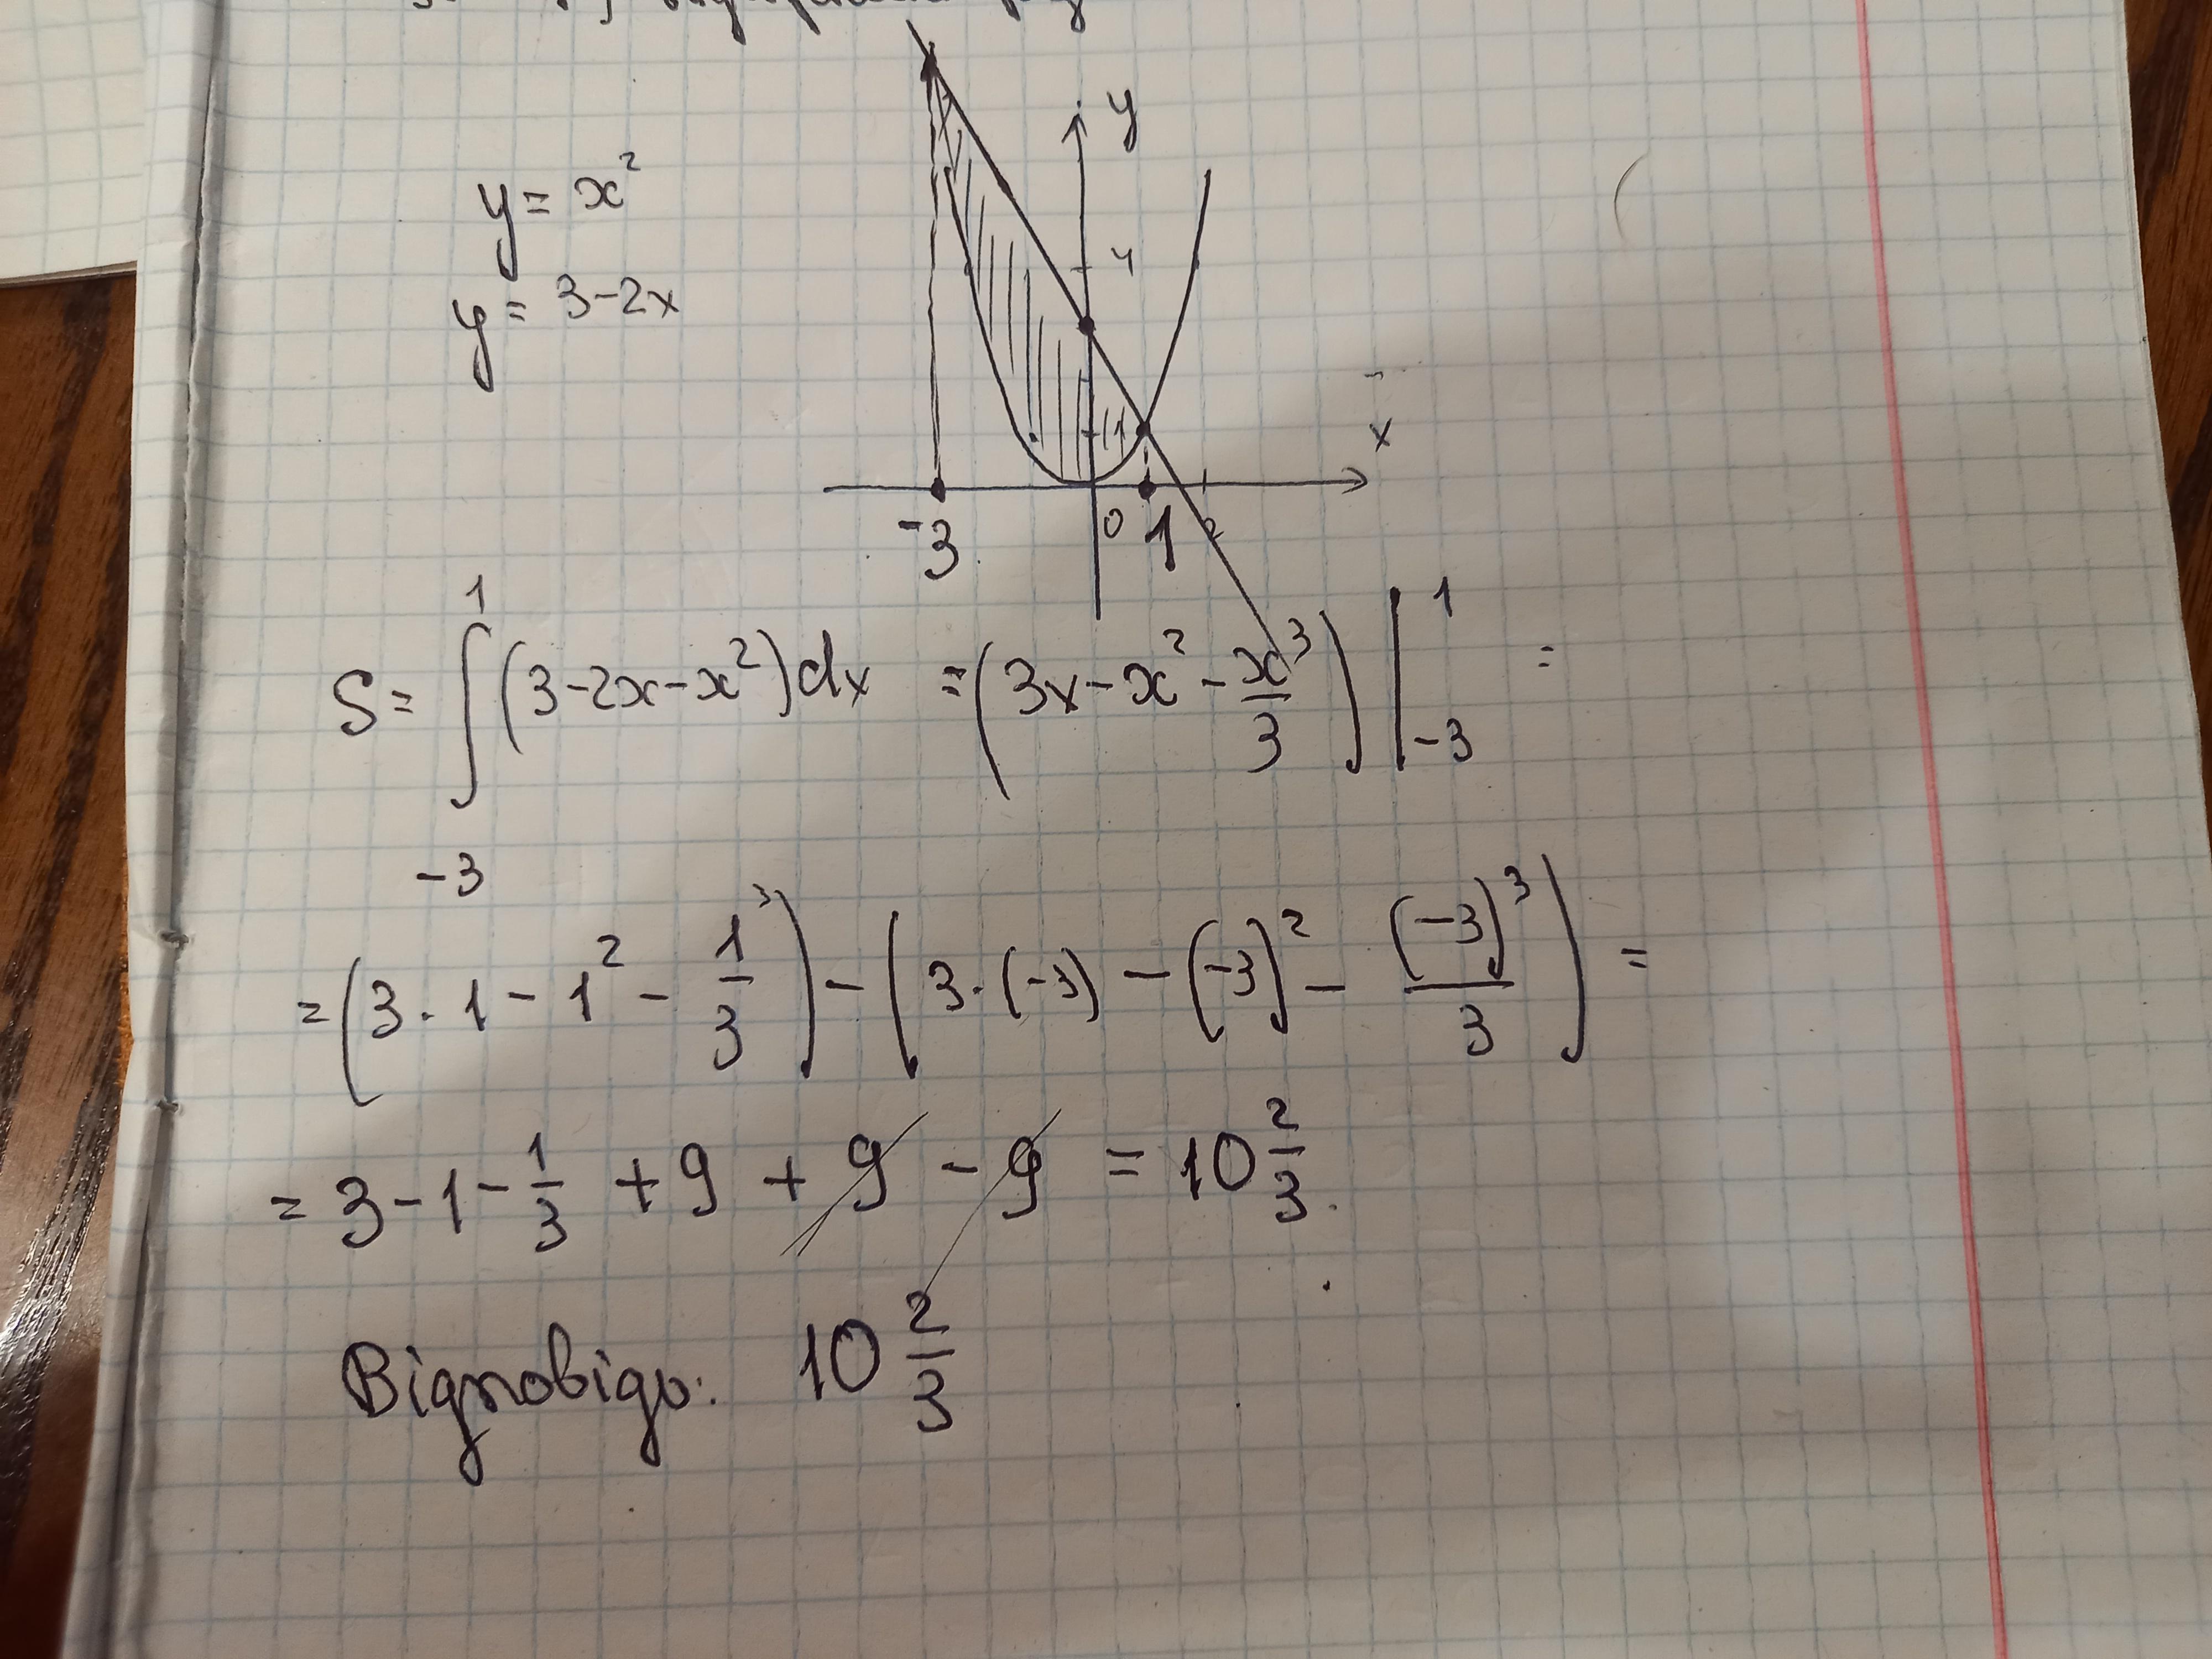 y = x²
y = 3-2x
y
4
1
x
-3 0 1 2
S = ∫₋₃¹ (3-2x-x²)dx = (3x - x² - x³/3) |₋₃¹ =
= (3·1 - 1² - 1³/3) - (3·(-3) - (-3)² - (-3)³/3) =
= 3-1-1/3 + 9 + 9 - 9 = 10 2/3.
Відповідь: 10 2/3